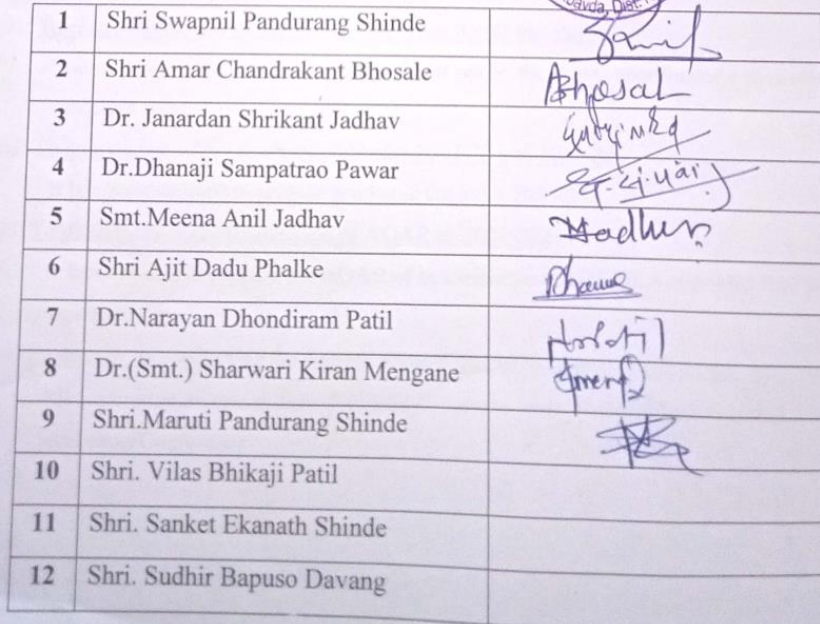 1 Shri Swapnil Pandurang Shinde
2 Shri Amar Chandrakant Bhosale Bhosale
3 Dr. Janardan Shrikant Jadhav
4 Dr.Dhanaji Sampatrao Pawar
5 Smt.Meena Anil Jadhav
6 Shri Ajit Dadu Phalke
7 Dr.Narayan Dhondiram Patil
8 Dr.(Smt.) Sharwari Kiran Mengane
9 Shri.Maruti Pandurang Shinde
10 Shri. Vilas Bhikaji Patil
11 Shri. Sanket Ekanath Shinde
12 Shri. Sudhir Bapuso Davang